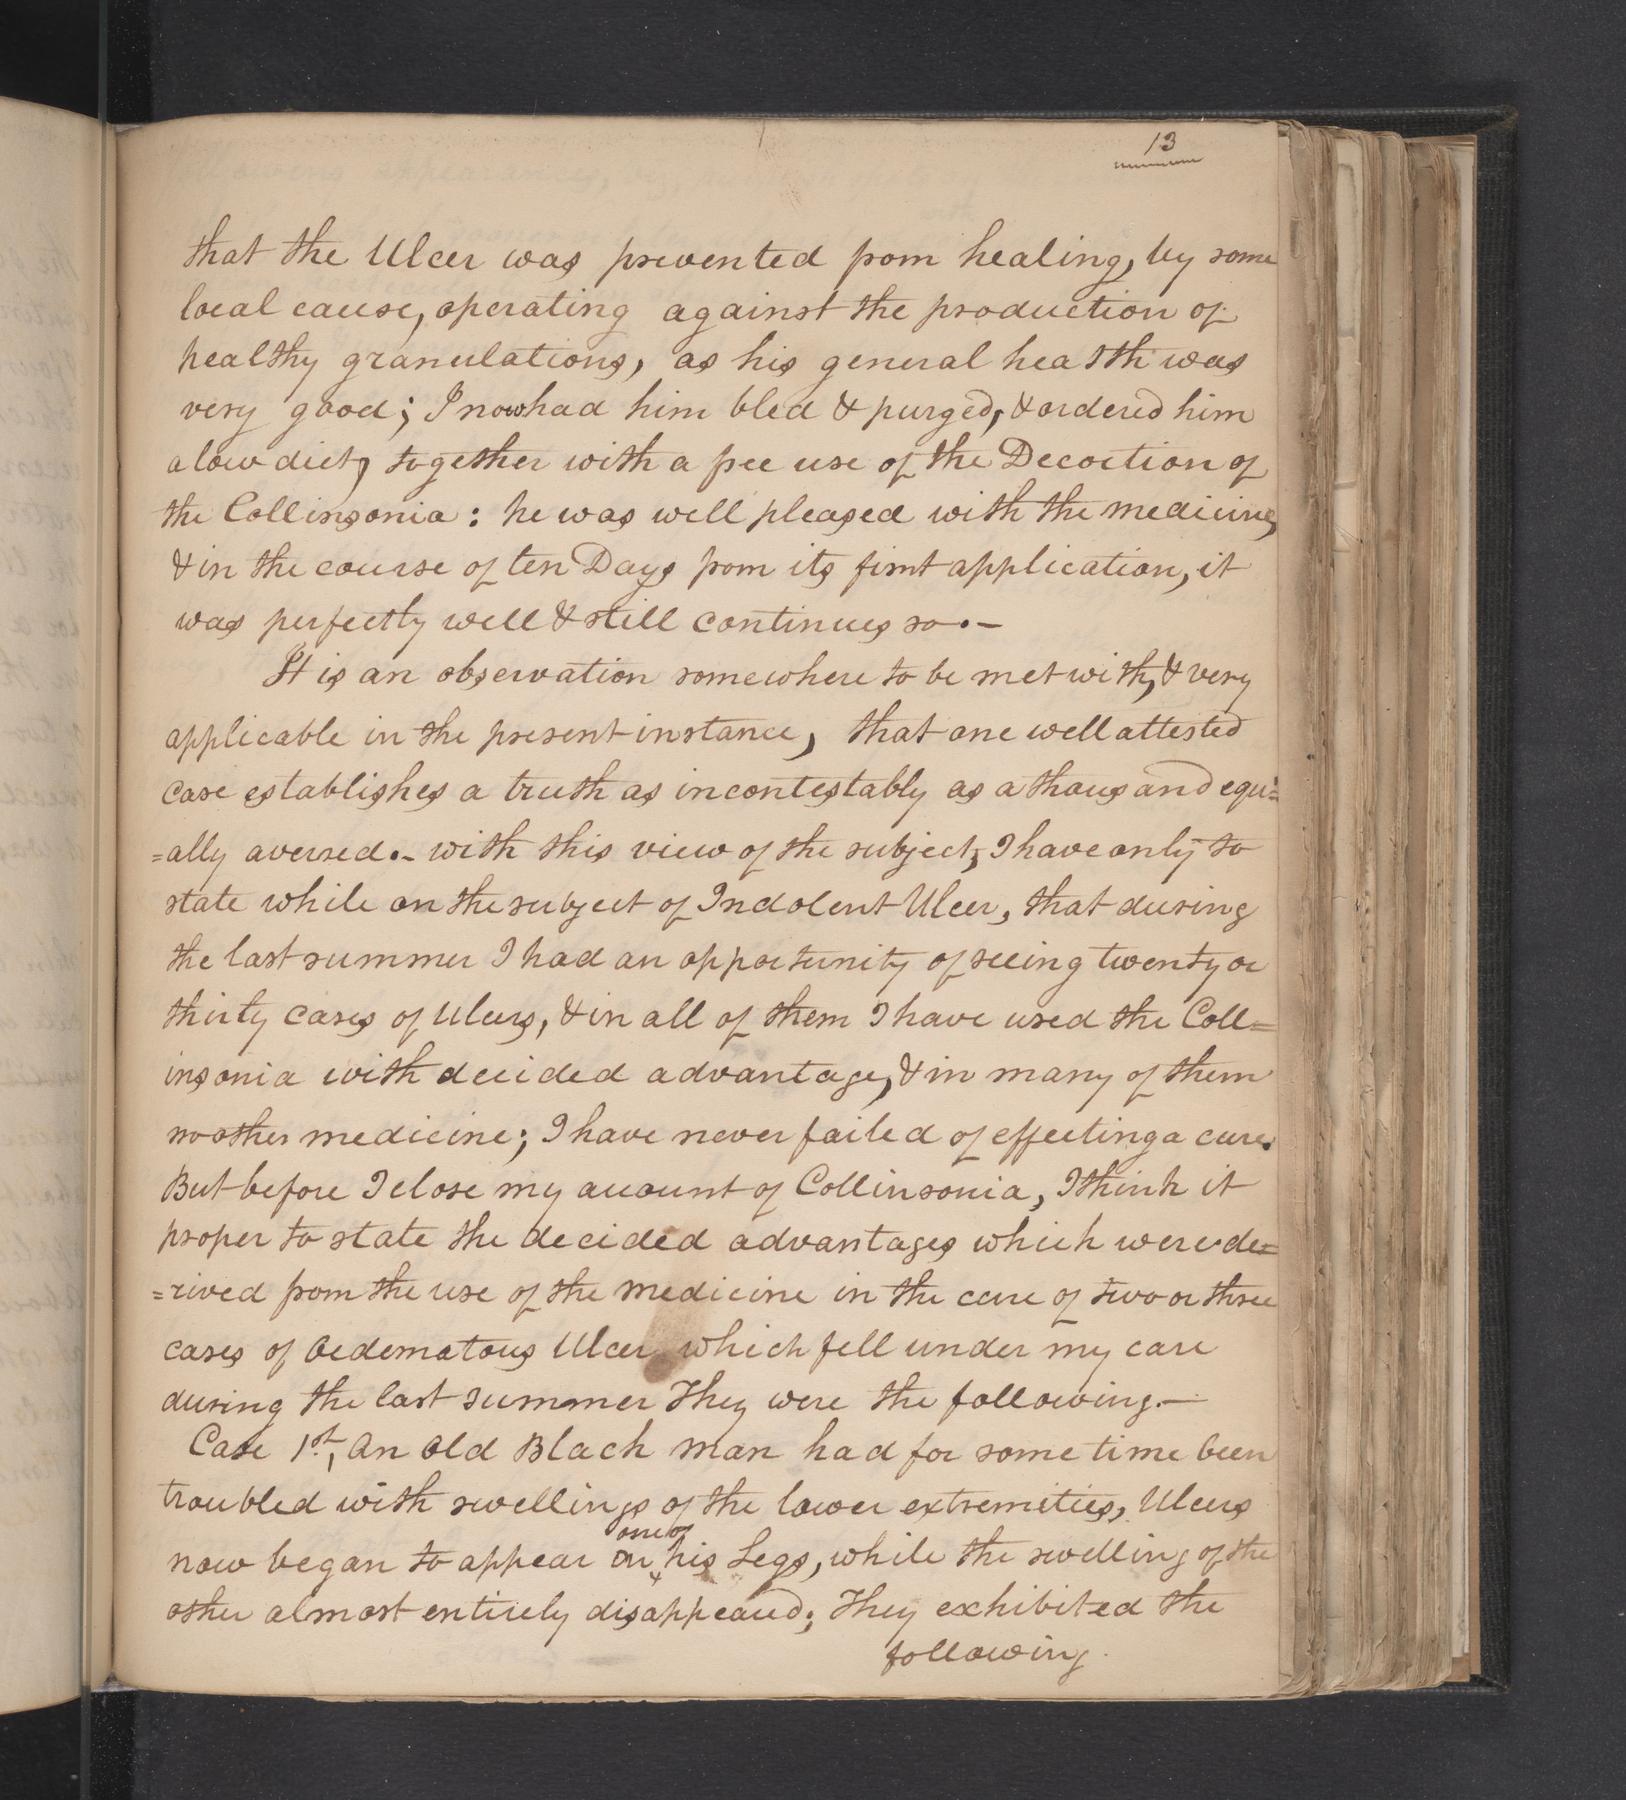 13
that the Ulcer was prevented from healing, by some
local cause, operating against the production of
healthy granulations, as his general health was
very good; I now had him bled & purged, & ordered him
a low diet, together with a free use of the Decoction of
the Collinsonia: he was well pleased with the medicine,
& in the course of ten Days from its first application, it
was perfectly well & still continues so.—
It is an observation somewhere to be met with, & very
applicable in the present instance, that one well attested
case establishes a truth as incontestably as a thousand equ=
=ally aversed.— with this view of the subject, I have only to
state while on the subject of Indolent Ulcer, that during
the last summer I had an opportunity of seeing twenty or
thirty cases of Ulcers, & in all of them I have used the Coll=
insonia with decided advantage, & in many of them
no other medicine; I have never failed of effecting a cure.
But before I close my account of Collinsonia, I think it
proper to state the decided advantages which were de=
=rived from the use of the medicine in the cure of two or three
cases of Oedematous Ulcer which fell under my care
during the last summer They were the following.—
Case 1st, An Old Black man had for some time been
troubled with swellings of the lower extremities, Ulcers
now began to appear on one of his Legs, while the swelling of the
other almost entirely disappeared; They exhibited the
following